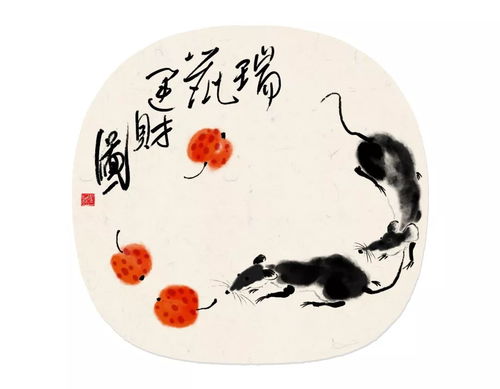 瑞鼠運財圖